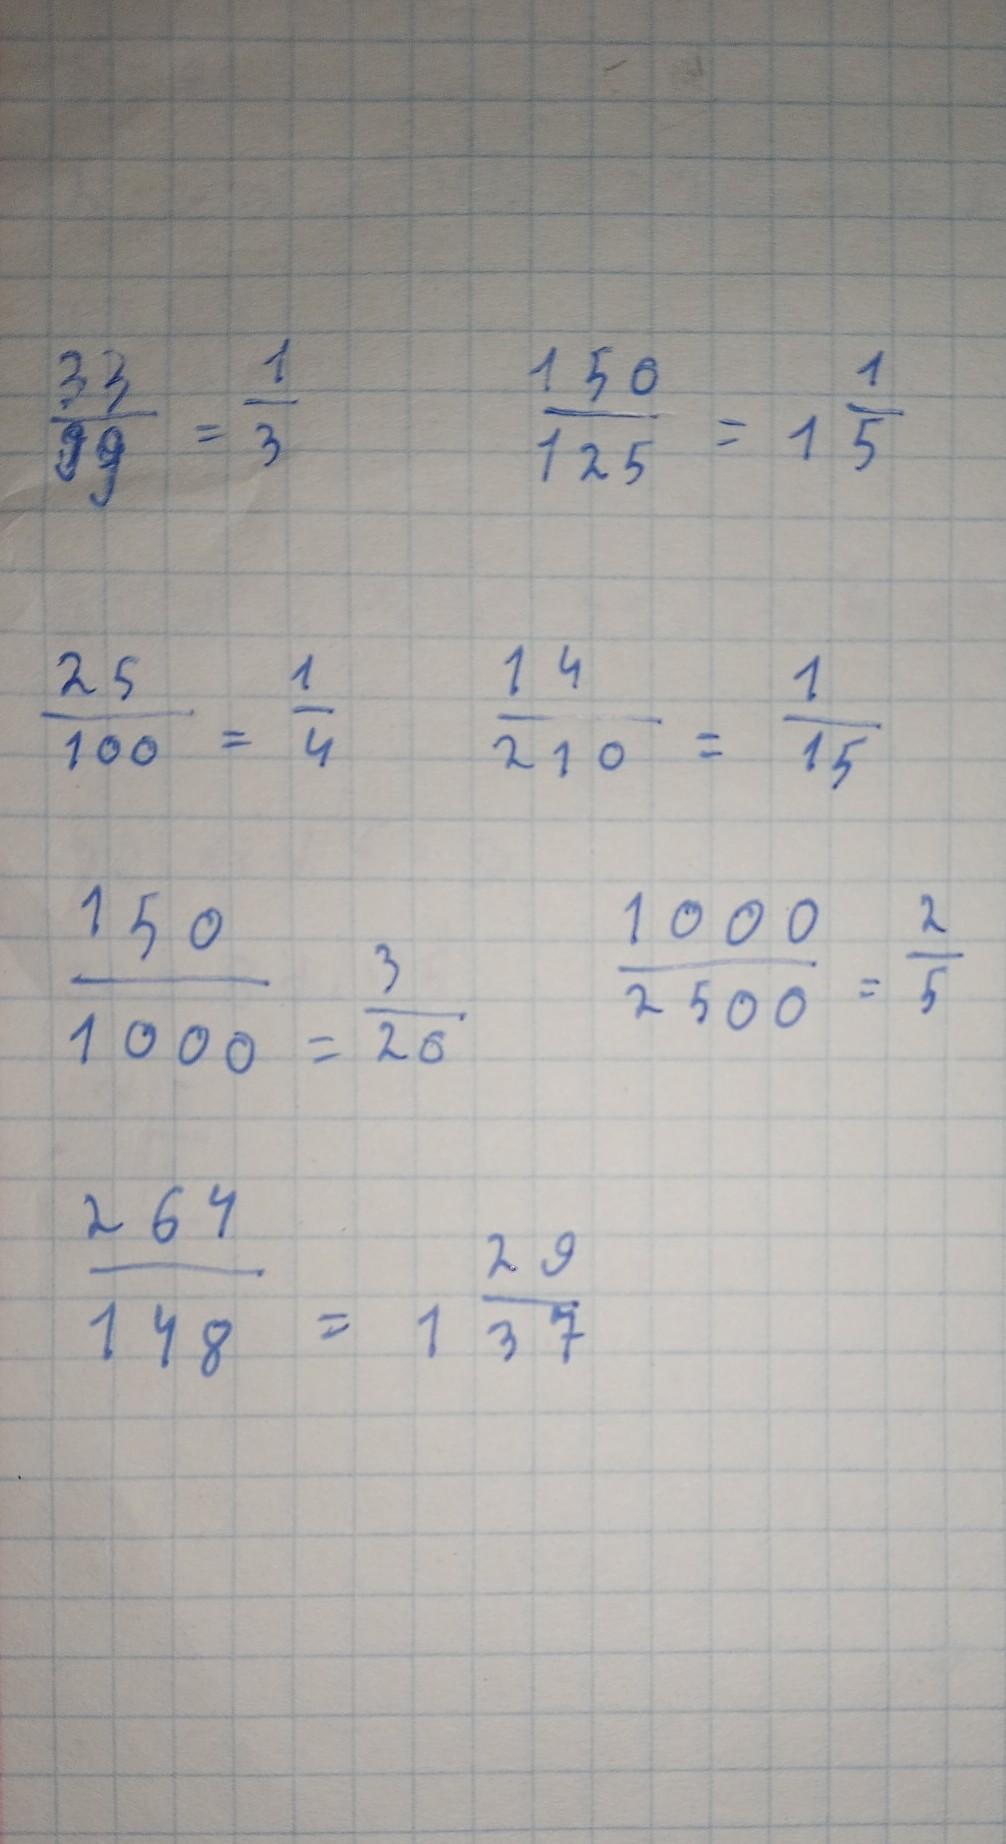 33/99 = 1/3    150/125 = 1 1/5
25/100 = 1/4    14/210 = 1/15
150/1000 = 3/20    1000/2500 = 2/5
264/148 = 1 29/37